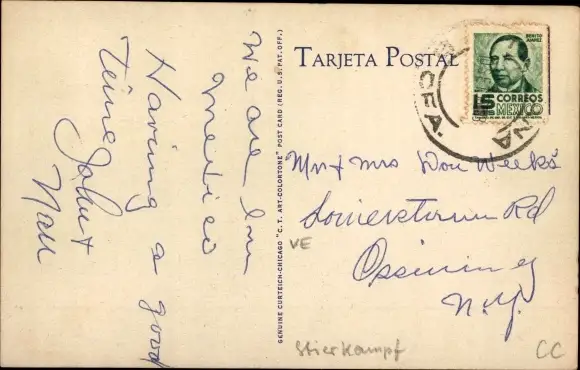 We are in
Mexico
Having a good
Time John &
Nan
GENUINE CURTEICH-CHICAGO "C. T. ART-COLORTONE" POST CARD (REG. U. S. PAT. OFF.)
TARJETA POSTAL
BENITO JUAREZ
15 CORREOS
MEXICO
OFA.
NA
Mr & Mrs Don Weeks
Somerstown Rd
Ossining
N.Y.
VE
Stierkampf
CC